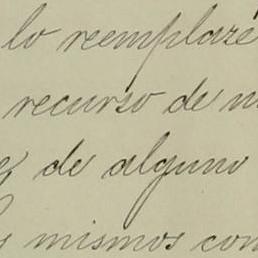 lo reemplazé
recurso de
de alguno
mismos con